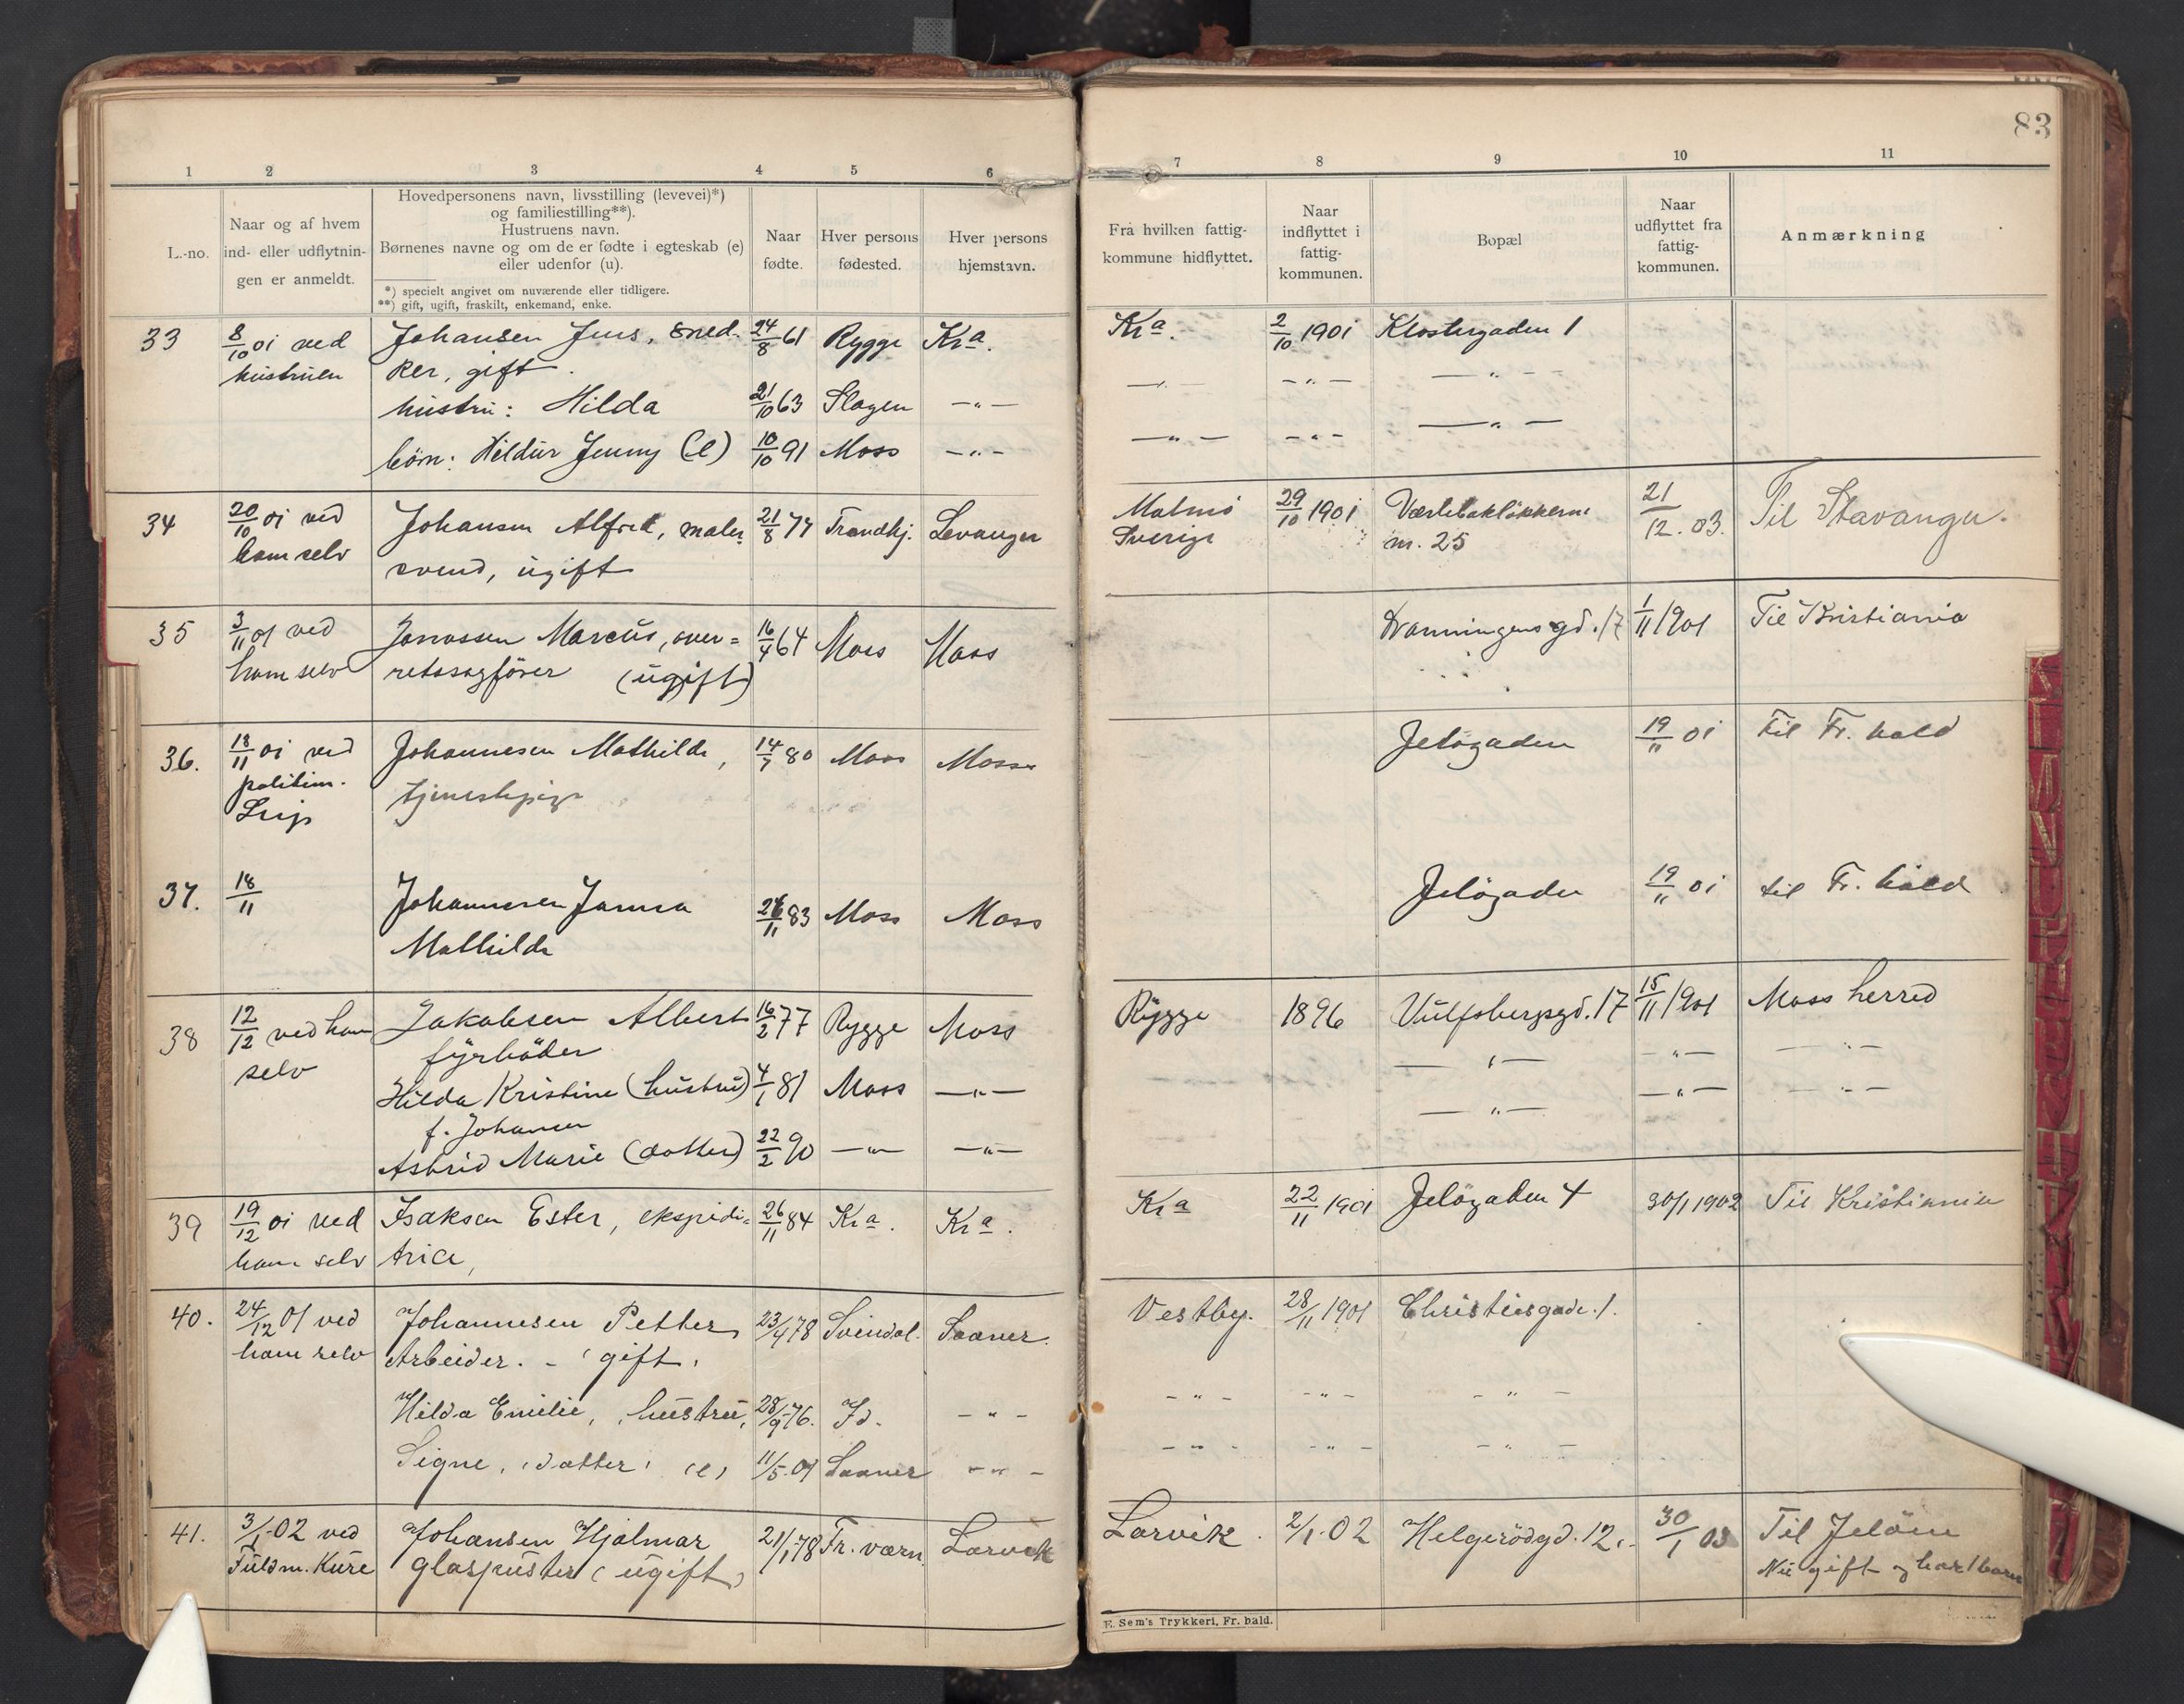 83
1 2 3 4 5 6 7 8 9 10 11
L.-no.
Naar og af hvem
ind- eller udflytnin-
gen er anmeldt.
Hovedpersonens navn, livsstilling (levevei)*)
og familiestilling**).
Hustruens navn.
Børnenes navne og om de er fødte i egteskab (e)
eller udenfor (u).
*) specielt angivet om nuværende eller tidligere.
**) gift, ugift, fraskilt, enkemand, enke.
Naar
fødte.
Hver persons
fødested.
Hver persons
hjemstavn.
Fra hvilken fattig-
kommune hidflyttet.
Naar
indflyttet i
fattig-
kommunen.
Bopæl
Naar
udflyttet fra
fattig-
kommunen.
Anmærkning
33 8/10 01 ved Johansen Jens, sned- 24/8 61 Rygge Kra. Kra. 2/10 1901 Klostergaden 1
hustruen ker, gift. —"— —"— —"—
hustru: Hilda 21/10 63 Slagen —"— —"— —"— —"—
börn: Hildur Jenny (e) 10/10 91 Moss —"—
34 20/10 01 ved Johansen Alfred, maler- 21/8 77 Trondhj. Levanger Malmö 29/10 1901 21/12.03. Til Stavanger.
ham selv svend, ugift Sverige nr. 25
35 3/11 01 ved Jonassen Marcus, over= 16/4 64 Moss Moss Dronningensgd. 17 1/11 1901 Til Kristiania
ham selv retssagförer (ugift)
36. 18/11 01 ved Johannesen Mathilde, 14/7 80 Moss Moss Jelögaden 19/11 01 til Fr. hald
politim. tjenestepige
37. 18/11 Johannesen Janna 26/11 83 Moss Moss Jelögaden 19/11 01 til Fr. hald
Mathilde
38 12/12 ved ham Jakobsen Albert 16/2 77 Rygge Moss Rygge 1896 Vulfsbergsgd. 17 15/11 1901 Moss herred
selv fyrböder —"— —"— —"—
Hilda Kristine (hustru) 4/1 81 Moss —"— —"— —"— —"—
f. Johansen
Astrid Marie (datter) 22/2 90 —"— —"—
39 19/12 01 ved Isaksen Ester, ekspedi= 26/11 84 Kra. Kra. Kra 22/11 1901 Jelögaden 4 30/1 1902 Til Kristiania
ham selv trice,
40. 24/12 01 ved Johannesen Petter 23/4 78 Svindal. Saaner. Vestby. 28/11 1901 Christiesgade. 1.
ham selv Arbeider. - gift.
Hilda Emilie, hustru, 28/9 76. Id. - " - - " - - " - - " -
Signe, datter (e) 11/5.01 Saaner - " - - " - - " - - " -
41. 3/1.02 ved Johansen Hjalmar 21/1 78 Fr. værn. Larvik Larvik. 2/1.02 Helgerödgd. 12. 30/1 03 Til Jelöen
Fuldm. Kure glaspuster (ugift) Nu gift og har 1 barn
E. Sem's Trykkeri, Fr. hald.